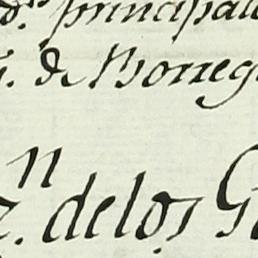 principal
de Borreg
n
delos G